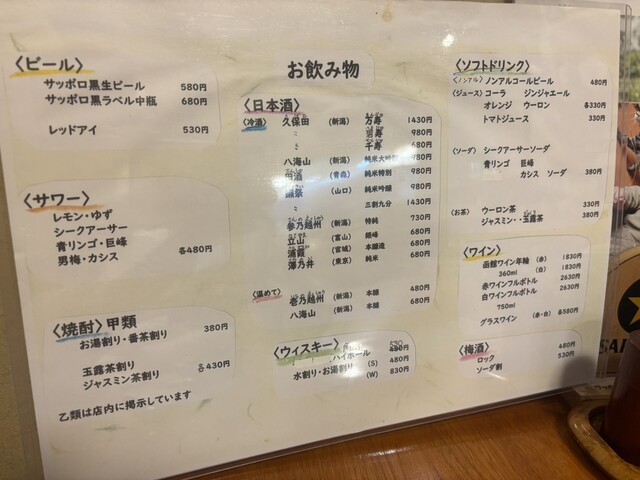 お飲み物
〈ビール〉
サッポロ黒生ビール 580円
サッポロ黒ラベル中瓶 680円
レッドアイ 530円
〈サワー〉
レモン・ゆず
シークアーサー
青リンゴ・巨峰
男梅・カシス 各480円
〈焼酎〉甲類
お湯割り・番茶割り 380円
玉露茶割り
ジャスミン茶割り 各430円
乙類は店内に掲示しています
〈日本酒〉
〈冷酒〉 久保田 (新潟) 万寿 1430円
〃 980円
〃 千寿 680円
八海山 (新潟) 純米大吟醸 980円
田酒 (青森) 純米特別 980円
獺祭 (山口) 純米吟醸 980円
〃 三割九分 1430円
参乃越州 (新潟) 特純 730円
立山 (富山) 銀峰 680円
浦霞 (宮城) 本醸造 680円
澤乃井 (東京) 純米 680円
〈温めて〉 壱乃越州 (新潟) 本醸 480円
八海山 (新潟) 本醸 680円
〈ウィスキー〉
ハイボール
水割り・お湯割り (S) 480円
(W) 830円
〈ソフトドリンク〉
〈ノンアル〉 ノンアルコールビール 480円
〈ジュース〉 コーラ ジンジャエール
オレンジ ウーロン 各330円
トマトジュース 330円
〈ソーダ〉 シークアーサーソーダ
青リンゴ 巨峰
カシス ソーダ 380円
〈お茶〉 ウーロン茶 330円
ジャスミン・玉露茶 380円
〈ワイン〉
函館ワイン年輪 (赤) 1830円
360ml (白) 1830円
赤ワインフルボトル 2630円
白ワインフルボトル 2630円
750ml
グラスワイン (赤・白) 各580円
〈梅酒〉 480円
ロック 530円
ソーダ割